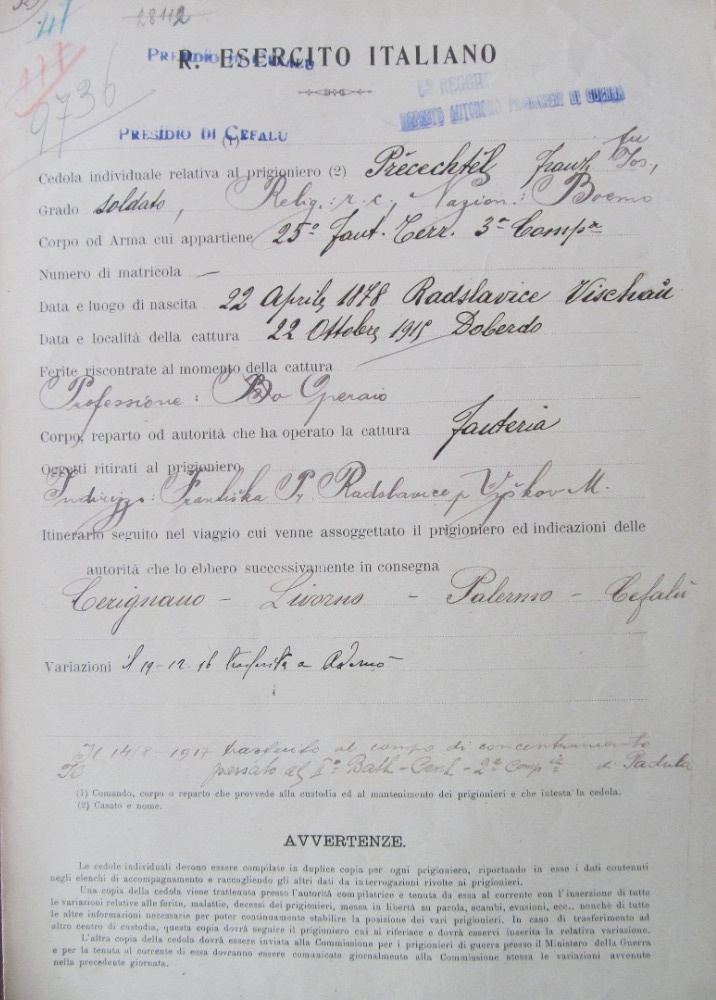 47
28112
9736
PRESIDIO DI CEFALU
R. ESERCITO ITALIANO
REPARTO AUTONOMO PRIGIONIERI DI GUERRA
PRESIDIO DI CEFALU
(1)
fu
Cedola individuale relativa al prigioniero (2) Přecechtěl Franz, Jos,
Grado soldato, Relig.: r. c., Nazion.: Boemo
Corpo od Arma cui appartiene 25º Fant. Terr. 3ª Compª
Numero di matricola —
Data e luogo di nascita 22 Aprile 1878 Radslavice Vischau
Data e località della cattura 22 Ottobre 1915 Doberdo
Ferite riscontrate al momento della cattura
Professione: Operaio
Corpo, reparto od autorità che ha operato la cattura Fanteria
Oggetti ritirati al prigioniero
Indirizzo: Františka Př. Radslavice p Vyškov M.
Itinerario seguito nel viaggio cui venne assoggettato il prigioniero ed indicazioni delle
autorità che lo ebbero successivamente in consegna
Cerignano - Livorno - Palermo - Cefalù
Variazioni il 19-12-16 trasferito a Adernò
Il 14/8-1917 traslocato al campo di concentramento
di Padula
passato al Iº Batt - Cent - 2ª Compia
(1) Comando, corpo o reparto che provvede alla custodia ed al mantenimento dei prigionieri e che intesta la cedola.
(2) Casato e nome.
AVVERTENZE.
Le cedole individuali devono essere compilate in duplice copia per ogni prigioniero, riportando in esse i dati contenuti
negli elenchi di accompagnamento e raccogliendo gli altri dati da interrogazioni rivolte ai prigionieri.
Una copia della cedola viene trattenuta presso l'autorità compilatrice e tenuta da essa al corrente con l'inserzione di tutte
le variazioni relative alle ferite, malattie, decessi dei prigionieri, messa in libertà su parola, scambi, evasioni, ecc., nonchè di tutte
le altre informazioni necessarie per poter continuamente stabilire la posizione dei vari prigionieri. In caso di trasferimento ad
altro centro di custodia, questa copia dovrà seguire il prigioniero cui si riferisce e dovrà esservi inserita la relativa variazione.
L'altra copia della cedola dovrà essere inviata alla Commissione per i prigionieri di guerra presso il Ministero della Guerra
e per la tenuta al corrente di essa dovranno essere comunicate giornalmente alla Commissione stessa le variazioni avvenute
nella precedente giornata.